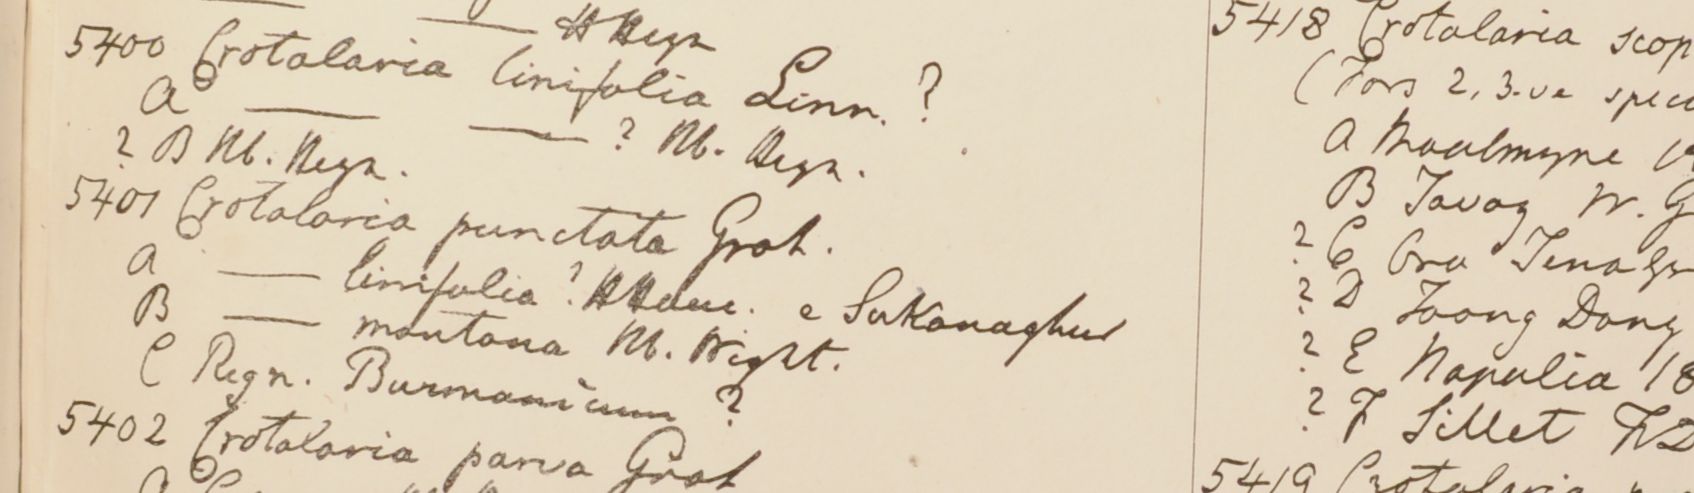 5400 Crotalaria linifolia Linn. ?
A
? Hb. Heyn.
? B Hb. Heyn.
5401 Crotalaria punctata Grah.
A linifolia ? e
B montana Hb. Wight.
C Regn. Burmanicum ?
5402 Crotalaria parva Grah
5418 Crotalaria scop
2, 3.
A Moulmyne
B Tavoy W. G
? C
? D Toong Dong
? E Napalia 18
? F Sillet
5419 Crotalaria